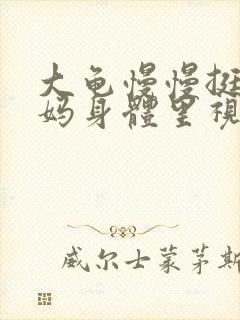 大龟慢慢挺
妈身體里視
威尔士蒙茅斯